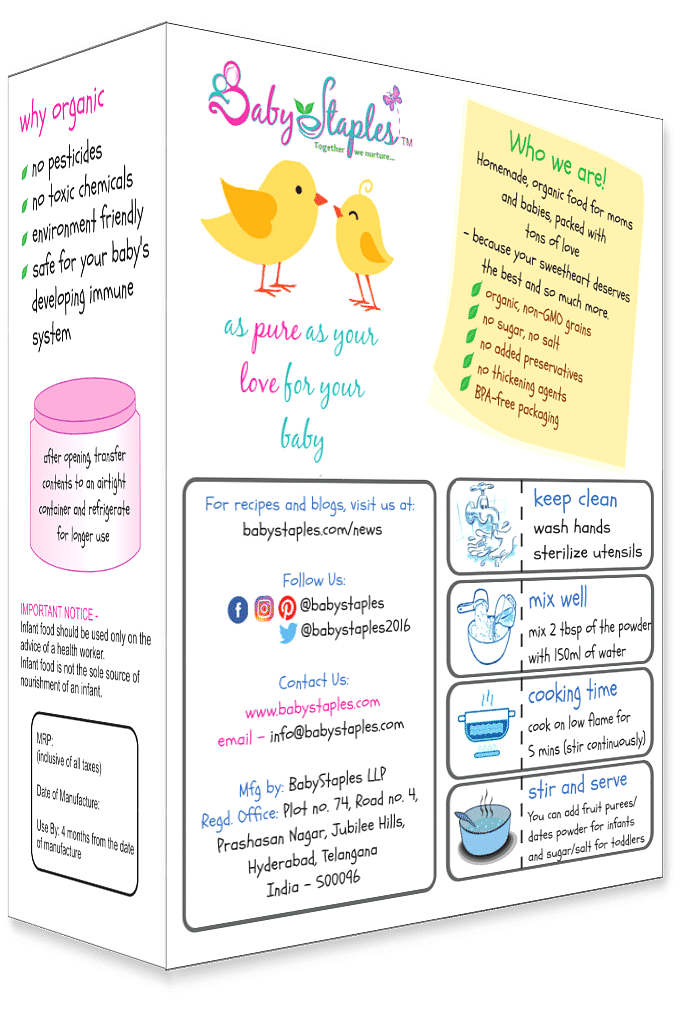 why organic
no pesticides
no toxic chemicals
environment friendly
safe for your baby's
developing immune
system
after opening, transfer
contents to an airtight
container and refrigerate
for longer use
IMPORTANT NOTICE -
Infant food should be used only on the
advice of a health worker.
Infant food is not the sole source of
nourishment of an infant.
MRP:
(inclusive of all taxes)
Date of Manufacture:
Use By: 4 months from the date
of manufacture
Baby Staples TM
Together we nurture...
as pure as your
love for your
baby
Who we are!
Homemade, organic food for moms
and babies, packed with
tons of love
- because your sweetheart deserves
the best and so much more.
organic, non-GMO grains
no sugar, no salt
no added preservatives
no thickening agents
BPA-free packaging
For recipes and blogs, visit us at:
babystaples.com/news
Follow Us:
@babystaples
@babystaples2016
Contact Us:
www.babystaples.com
email - info@babystaples.com
Mfg by: BabyStaples LLP
Regd. Office: Plot no. 74, Road no. 4,
Prashasan Nagar, Jubilee Hills,
Hyderabad, Telangana
India - 500096
keep clean
wash hands
sterilize utensils
mix well
mix 2 tbsp of the powder
with 150ml of water
cooking time
cook on low flame for
5 mins (stir continuously)
stir and serve
You can add fruit purees/
dates powder for infants
and sugar/salt for toddlers